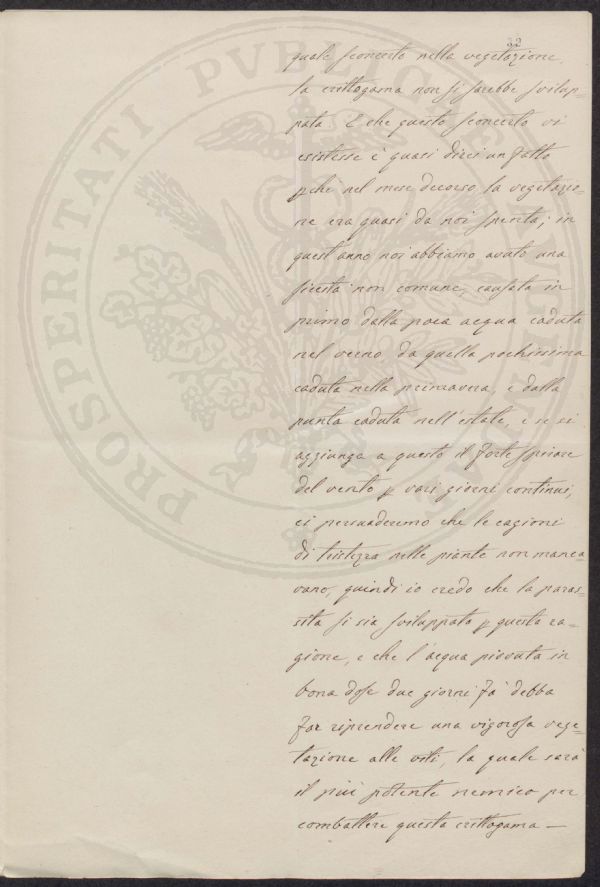 32
quale sconcerto nella vegetazione,
la crittogama non si sarebbe svilup=
pata. E che questo sconcerto vi
esistesse è quasi direi un fatto
pchè nel mese decorso, la vegetazio=
ne era quasi da noi spenta; in
quest'anno noi abbiamo avuto una
siccità non comune, causata in
primo dalla poca acqua caduta
nel verno, da quella pochissima
caduta nella primavera, e dalla
punta caduta nell'estate, e se si
aggiunga a questo il forte spirare
del vento p vari giorni continui,
ci persuaderemo che le cagioni
di tristezza nelle piante non manca
vano, quindi io credo che la paras=
sita si sia sviluppata p questa ra=
gione, e che l'acqua piovuta in
bona dose due giorni fa debba
far riprendere una vigorosa vege=
tazione alle viti, la quale sarà
il più potente nemico per
combattere questa crittogama —
PROSPERITATI PVBLICAE